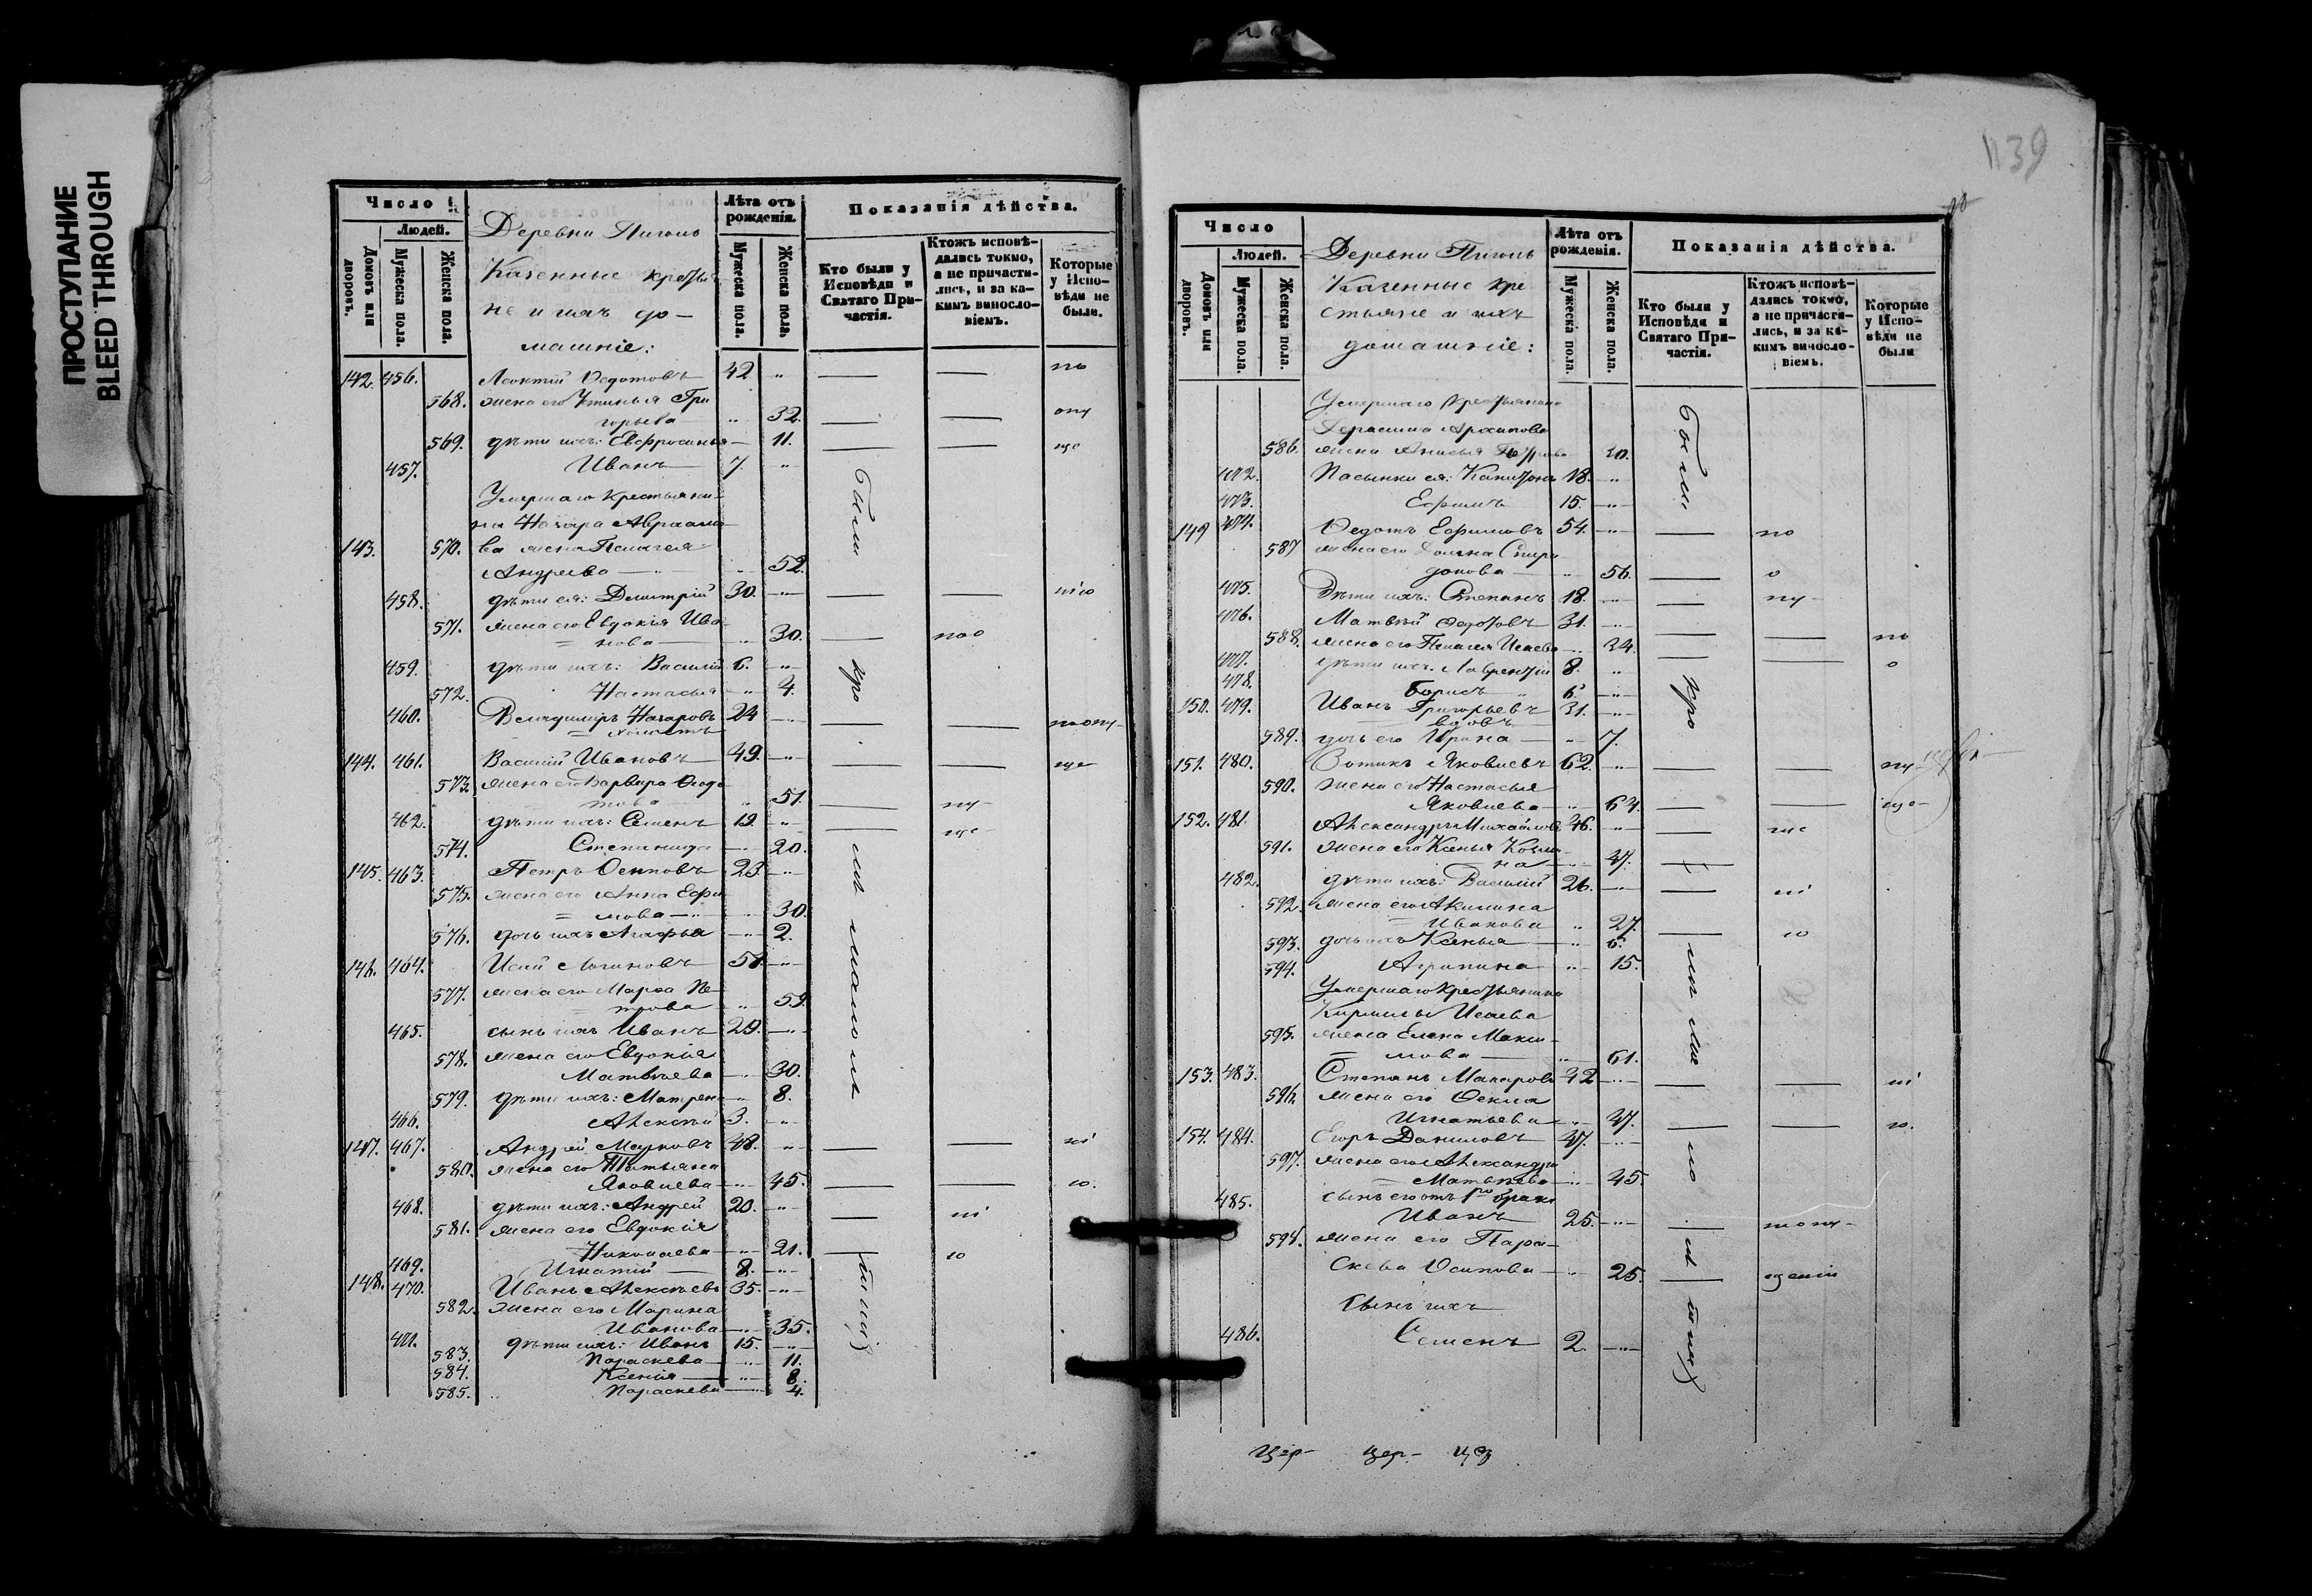 ПРОСТУПАНИЕ
BLEED THROUGH
Число
Людей.
Домовъ или дворовъ.
Мужеска пола.
Женска пола.
Деревни
Казенные крестья
не и ихъ до-
машніе:
Лѣта отъ рожденія.
Мужеска пола.
Женска пола.
Показанія дѣйства.
Кто были у Исповѣди и Святаго Причастія.
Ктожъ исповѣдались токмо, а не причастились, и за какимъ винословіемъ.
Которые у Исповѣди не были.
142. 456. Леонтій Ѳедотовъ 42 по
568. жена его Устинья Гри
горьева 32. опу
569. дѣти ихъ: Евфросинья 11. ще
457. Иванъ 7.
Умершаго крестьяни-
на Назара Авраамо
143. 570. ва жена Пелагея
Андреева 52.
458. дѣти ея: Димитрій 30. нію
571. жена его Евдокія Ива
нова 30.
459. дѣти ихъ: Василій 6.
572. Настасья 4.
460. Владимиръ Назаровъ 24
холостъ
144. 461. Василій Ивановъ 49. ще
573. жена его Варвара Ѳедо
това 51. пу-
462. дѣти ихъ: Семенъ 19. ще-
574. Степанида 20.
145. 463. Петръ Осиповъ 23.
575. жена его Анна Ефи
мова 30.
576. дочь ихъ Агафья 2.
146. 464. Исай Логиновъ
577. жена его Марфа Пе-
трова 59.
465. сынъ ихъ Иванъ 29.
578. жена его Евдокія
Матвѣева 30.
579. дѣти ихъ: Матрена 8.
466. Алексѣй 3.
147. 467. Андрей Марковъ 48. ні
580. жена его Татьяна
Яковлева 45. ю.
468. дѣти ихъ: Андрей 20. ні
581. жена его Евдокія
Николаева 21. ю
469. Игнатій 8.
148. 470. Иванъ Алексѣевъ 35.
582. жена его Марина
Иванова 35.
471. дѣти ихъ: Иванъ 15.
583. Параскева 11.
584. Ксенія 8.
585. Параскева 4.
Были
кро
мѣ
малолѣ
тныхъ
1139
Число
Людей.
Домовъ или дворовъ.
Мужеска пола.
Женска пола.
Деревни
Казенные кре
стьяне и ихъ
домашніе:
Лѣта отъ рожденія.
Мужеска пола.
Женска пола.
Показанія дѣйства.
Кто были у Исповѣди и Святаго Причастія.
Ктожъ исповѣдались токмо, а не причастились, и за какимъ винословіемъ.
Которые у Исповѣди не были
Умершаго крестьянина
Герасима Архипова
586. жена Анисья Петрова 30.
472. Пасынки ея: Капитонъ 18.
473. Ефимъ 15.
149 474. Ѳедотъ Ефимовъ 54. по
587 жена его Домна Спири
донова 56. о
475. Дѣти ихъ: Степанъ 18. пу-
476. Матвѣй Ѳедотовъ 31.
588. жена его Пелагея Исаева 34. по
477. дѣти ихъ: Лаврентій 8. о
478. Борисъ 6.
150. 479. Иванъ Григорьевъ 31.
вдовъ
589. дочь его Ирина 7.
151. 480. Зотикъ Яковлевъ 62. пу
590. жена его Настасья
Яковлева 64. ще-
152. 481. Александръ Михайловъ 46. ще
591. жена его Ксенья Козми
на 47.
482. дѣти ихъ: Василій 26. ні
592. жена его Акилина
Иванова 27. ю
593. дочь ихъ Ксенья 6.
594. Агрипина 15.
Умершаго крестьянина
Кирилы Исаева
595. жена Елена Макси-
мова 61.
153. 483. Степанъ Макаровъ 42 ні
596. жена его Ѳекла
Игнатьева 47. ю.
154. 484. Егоръ Даниловъ 47.
597. жена его Александра
Матвѣева 45.
485. сынъ его отъ 1го брака
Иванъ 25.
598. жена его Пара-
скева Осипова 25. щенію
Сынъ ихъ
486. Семенъ 2.
Были
кро
мѣ ма
ло
лѣ
тныхъ